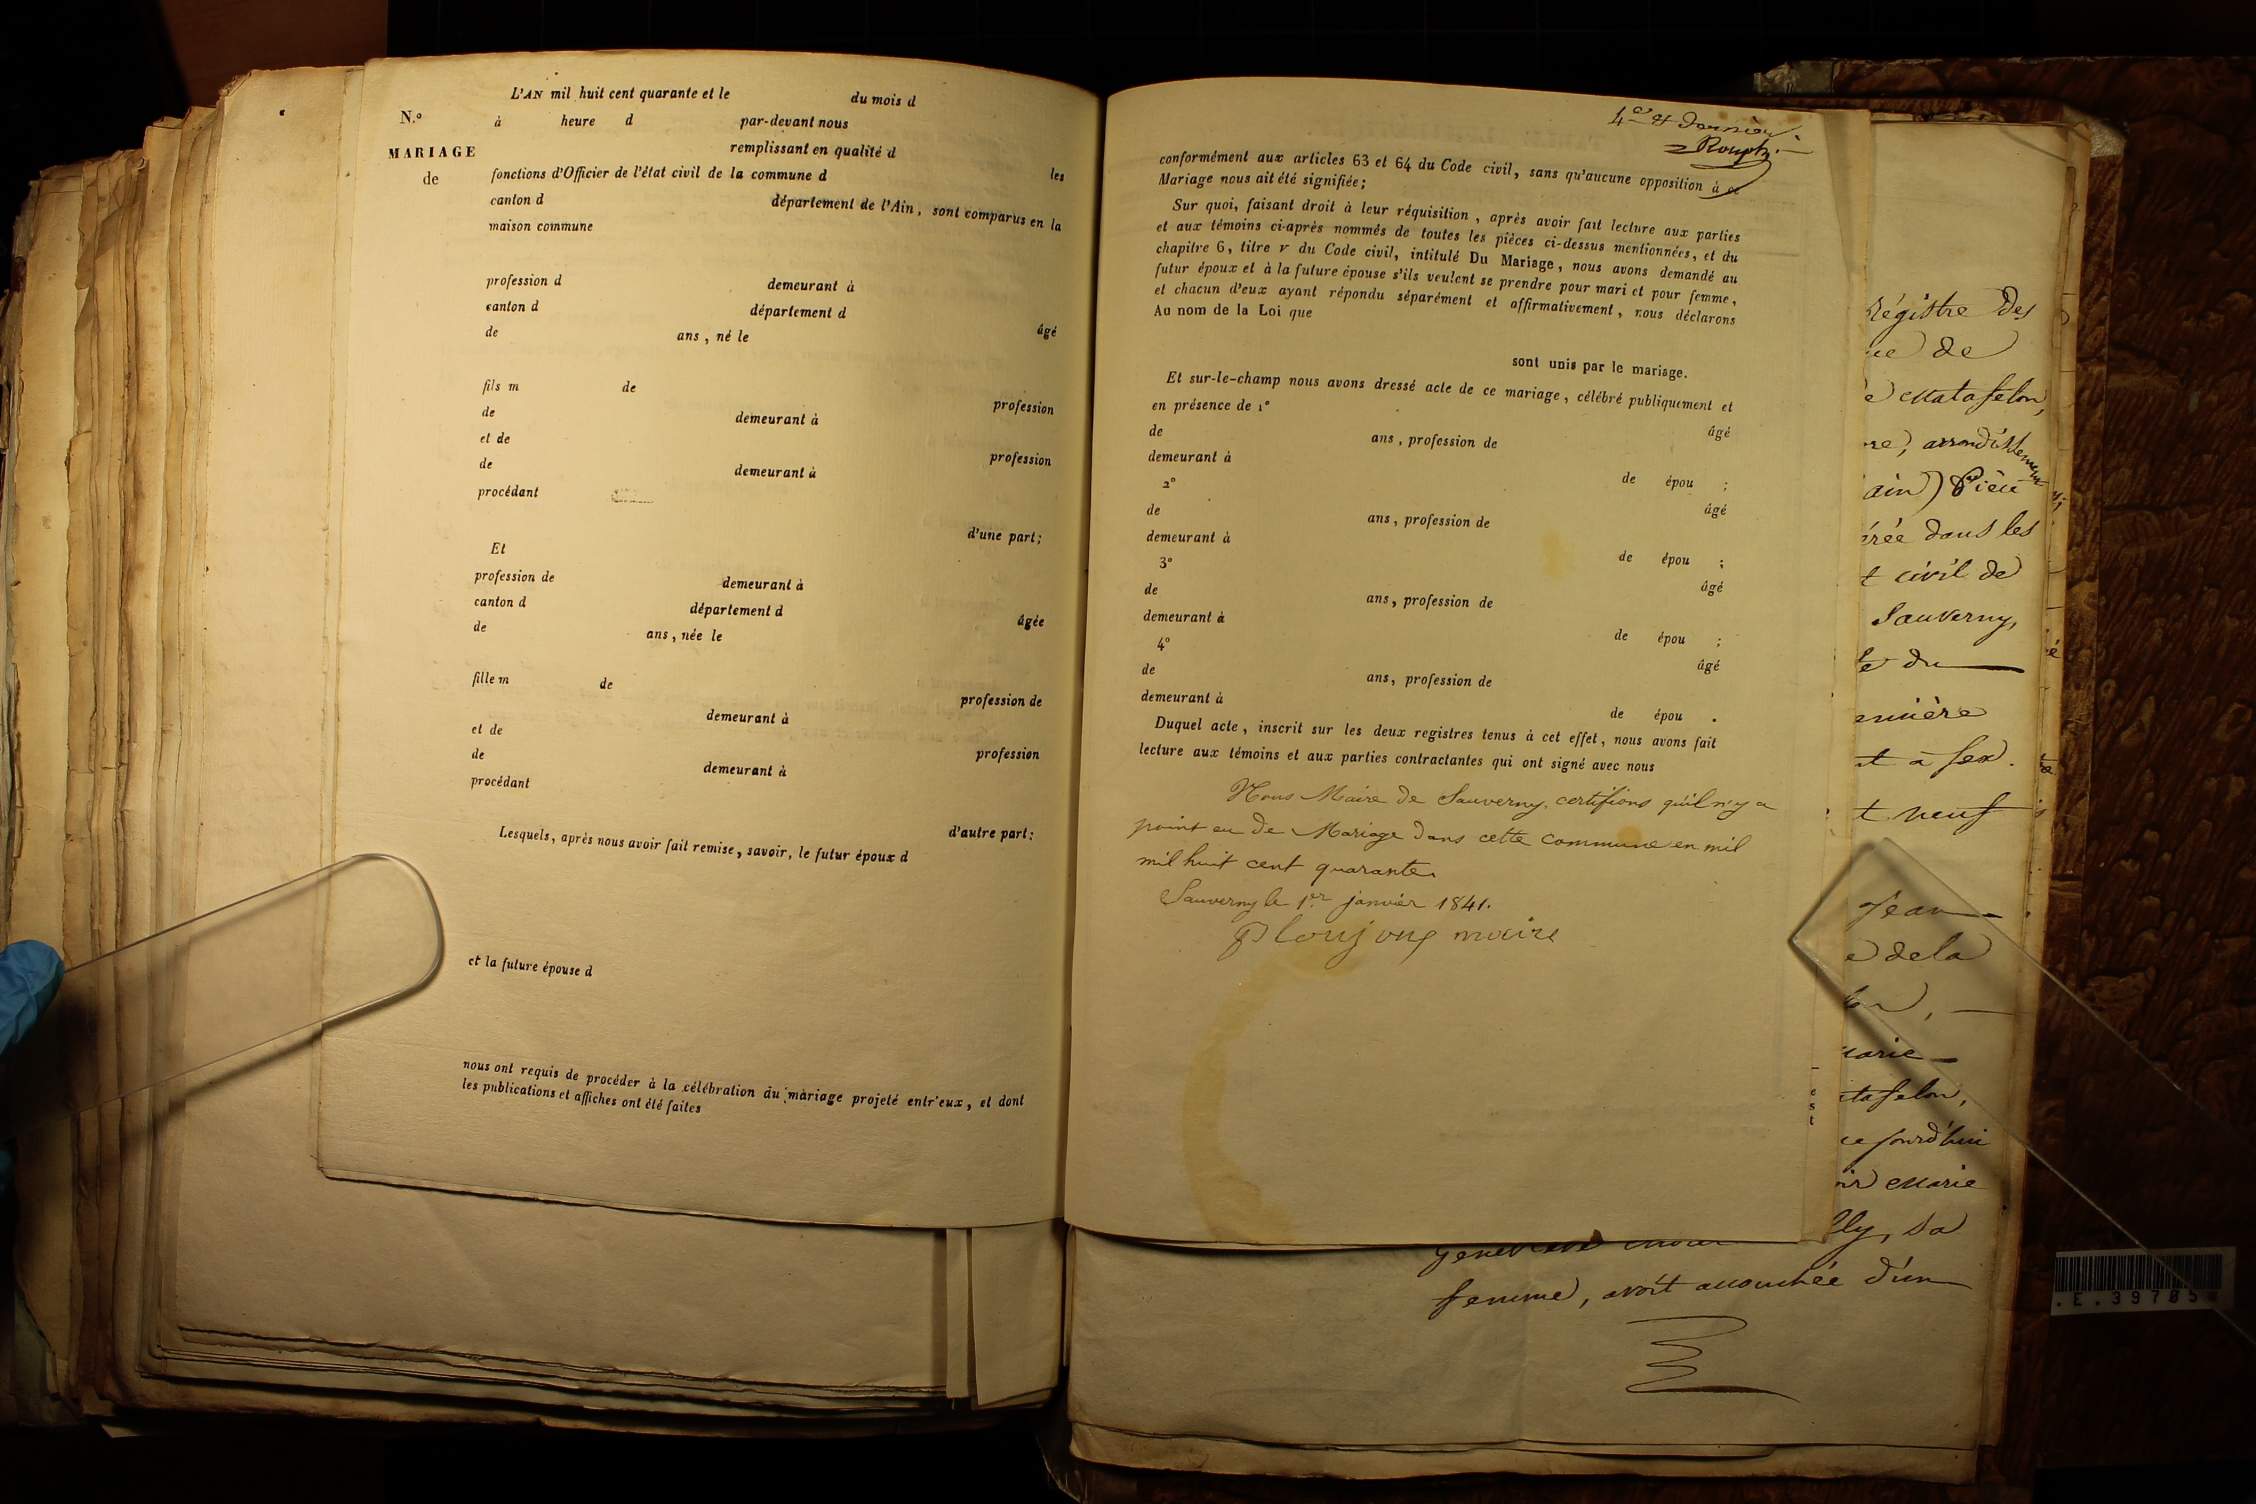 L'AN mil huit cent quarante et le du mois d
N.º à heure d par-devant nous
MARIAGE remplissant en qualité d les
de fonctions d'Officier de l'état civil de la commune d
canton d département de l'Ain, sont comparus en la
maison commune
profession d demeurant à
canton d département d âgé
de ans, né le
fils m de profession
de demeurant à
et de profession
de demeurant à
procédant
d'une part;
Et
profession de demeurant à
canton d département d âgée
de ans, née le
fille m de profession de
demeurant à
et de profession
de demeurant à
procédant
d'autre part:
Lesquels, après nous avoir fait remise, savoir, le futur époux d
et la future épouse d
nous ont requis de procéder à la célébration du mariage projeté entr'eux, et dont
les publications et affiches ont été faites
4e et dernier
conformément aux articles 63 et 64 du Code civil, sans qu'aucune opposition à ce
Mariage nous ait été signifiée;
Sur quoi, faisant droit à leur réquisition, après avoir fait lecture aux parties
et aux témoins ci-après nommés de toutes les pièces ci-dessus mentionnées, et du
chapitre 6, titre v du Code civil, intitulé Du Mariage, nous avons demandé au
futur époux et à la future épouse s'ils veulent se prendre pour mari et pour femme,
et chacun d'eux ayant répondu séparément et affirmativement, nous déclarons
Au nom de la Loi que
sont unis par le mariage.
Et sur-le-champ nous avons dressé acte de ce mariage, célébré publiquement et
en présence de 1º âgé
de ans, profession de
demeurant à de épou ;
2º âgé
de ans, profession de
demeurant à de épou ;
3º âgé
de ans, profession de
demeurant à de épou ;
4º âgé
de ans, profession de
demeurant à de épou .
Duquel acte, inscrit sur les deux registres tenus à cet effet, nous avons fait
lecture aux témoins et aux parties contractantes qui ont signé avec nous
Nous Maire de Sauverny, certifions qu'il n'y a
point eu de Mariage dans cette commune en mil
mil huit cent quarante.
Sauverny le 1er janvier 1841.
maire
régistre des
de
Matafelon,
arrondissement
ain)
dans les
civil de
Sauverny,
du
à Gex.
neuf
Jean
dela
jourd'hui
Marie
lly, sa
femme, avoit accouchée d'un
.E.39785